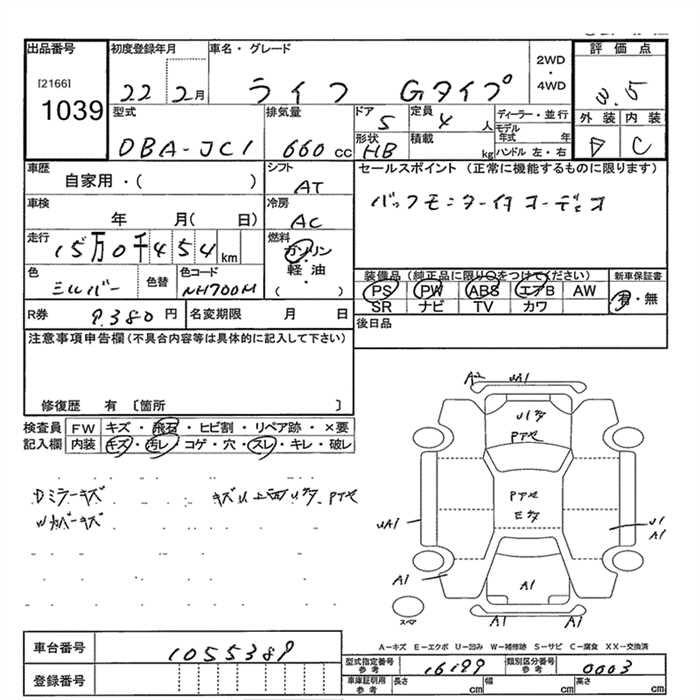 出品番号 初度登録年月 車名・グレード 2WD ・ 4WD 評価点
[2166] 1039 22 2月 ライフ Gタイプ 3.5
型式 排気量 ドア 5 定員 4人 ディーラー・並行 外装 内装
DBA-JC1 660cc 形状 HB 積載 kg モデル年式 年 ハンドル 左・右 D C
車歴 シフト セールスポイント (正常に機能するものに限ります)
自家用・( ) AT
車検 冷房 バックモニター付オーディオ
年 月( 日) AC
走行 15万0千454km 燃料 ガソリン・軽油・( )
装備品 (純正品に限り○をつけてください) 新車保証書
色 シルバー 色替 色コード NH700M PS PW ABS エアB AW 有・無
SR ナビ TV カワ
R券 9,380円 名変期限 月 日 後日品
注意事項申告欄(不具合内容等は具体的に記入して下さい)
修復歴 有〔箇所 〕
検査員 FW キズ・飛石・ヒビ割・リペア跡・×要
記入欄 内装 キズ・汚レ・コゲ・穴・スレ・キレ・破レ
Dミラーキズ
Wカバーキズ
A2
A1
A1
A1
A1
A1
A1
スペア
A-キズ E-エクボ U-凹み W-補修跡 S-サビ C-腐食 XX-交換済
車台番号 1055389 型式指定番号 参考 16199 類別区分番号 参考 0003
登録番号 車庫証明用 参考 長さ cm 幅 cm 高さ cm